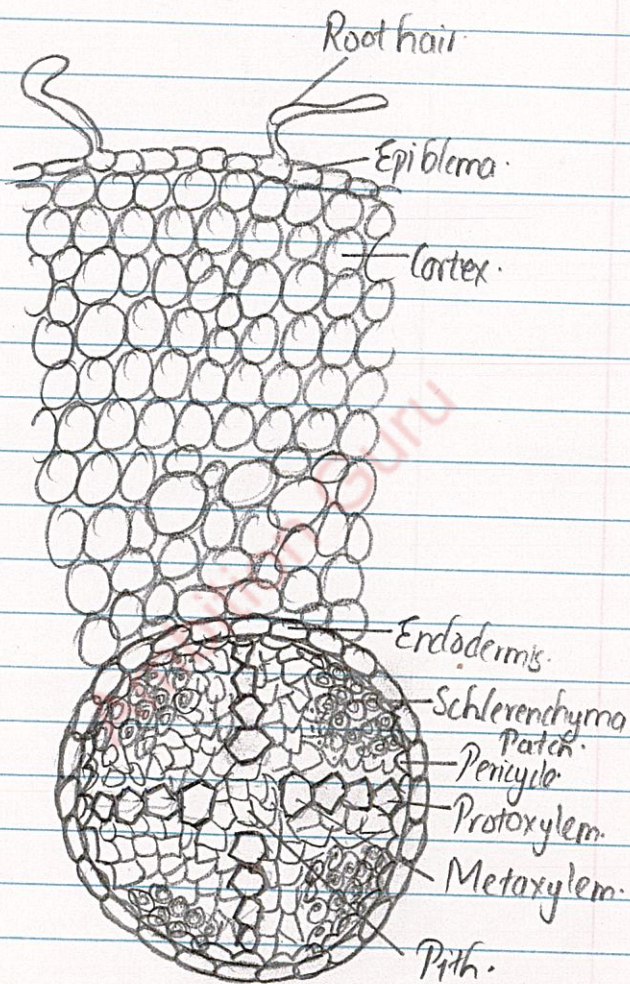 Root hair
Epiblema.
Cortex.
Endodermis.
Schlerenchyma
Patch.
Pericycle.
Protoxylem.
Metaxylem.
Pith.